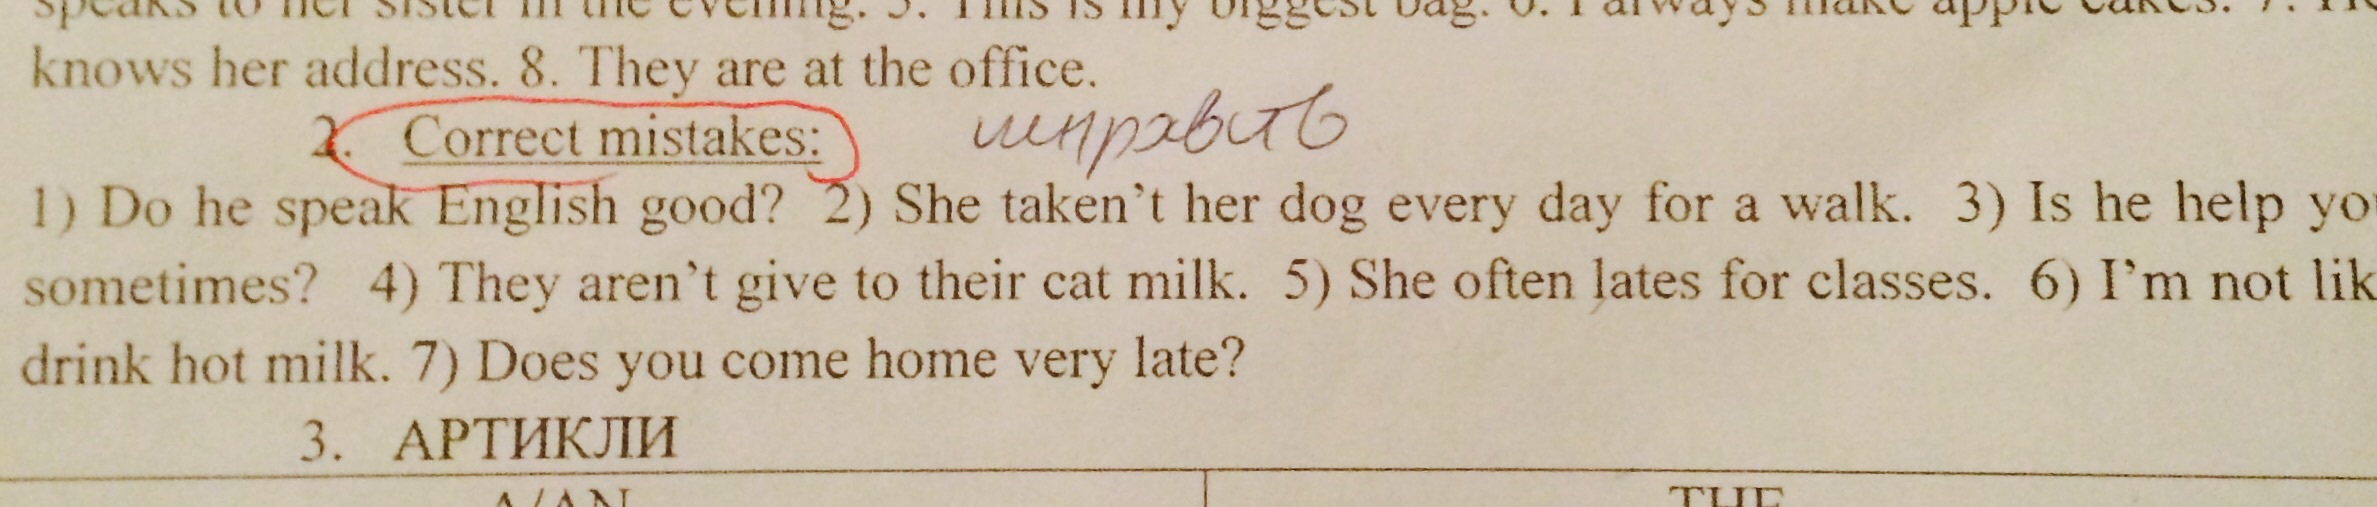 speaks to her sister in the evening. 5. This is my biggest bag. 6. I always make apple cakes. 7. He
knows her address. 8. They are at the office.
2. Correct mistakes: исправить
1) Do he speak English good? 2) She taken't her dog every day for a walk. 3) Is he help you
sometimes? 4) They aren't give to their cat milk. 5) She often lates for classes. 6) I'm not lik
drink hot milk. 7) Does you come home very late?
3. АРТИКЛИ
A/AN THE